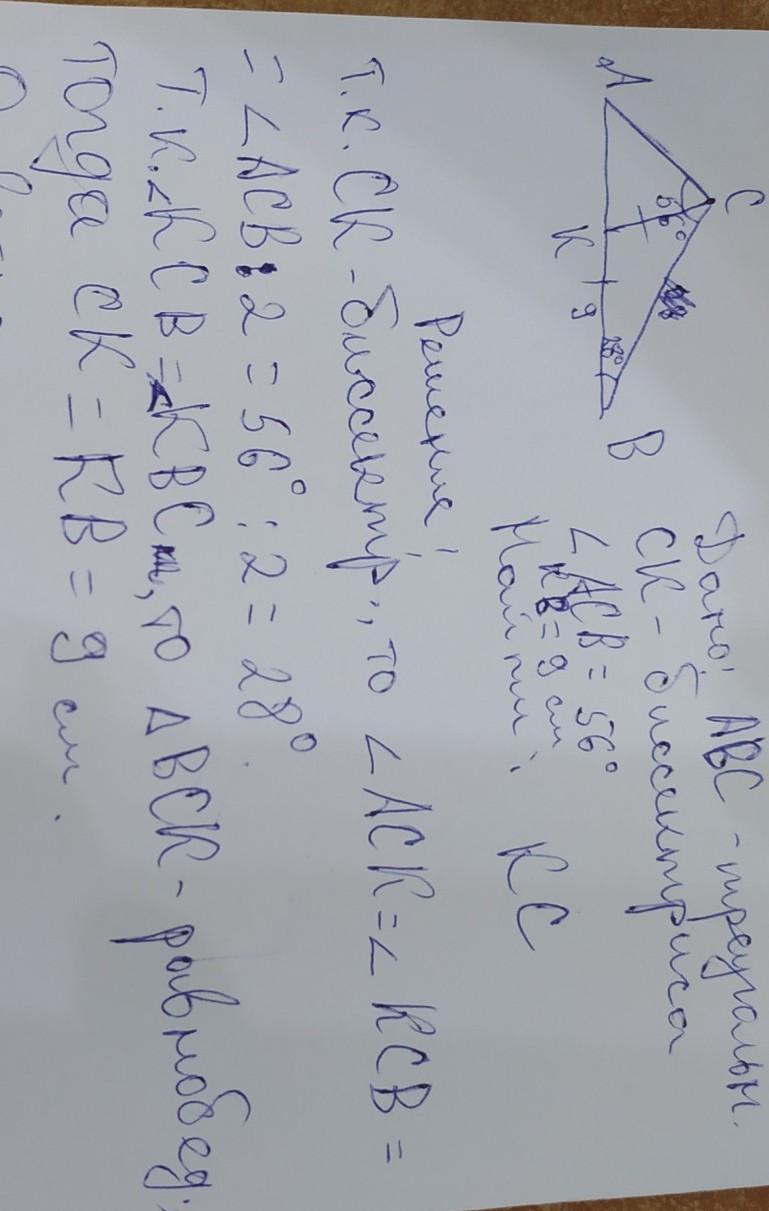 C
56°
A
K
9
28°
B
Дано: ABC - треугольн.
CK - биссектриса
∠ACB = 56°
KB = 9 см
Найти: KC
Решение:
Т.к. CK - биссектр., то ∠ACK = ∠KCB =
= ∠ACB : 2 = 56° : 2 = 28°.
Т.к. ∠KCB = ∠KBC, то ΔBCK - равнобед.,
тогда CK = KB = 9 см.